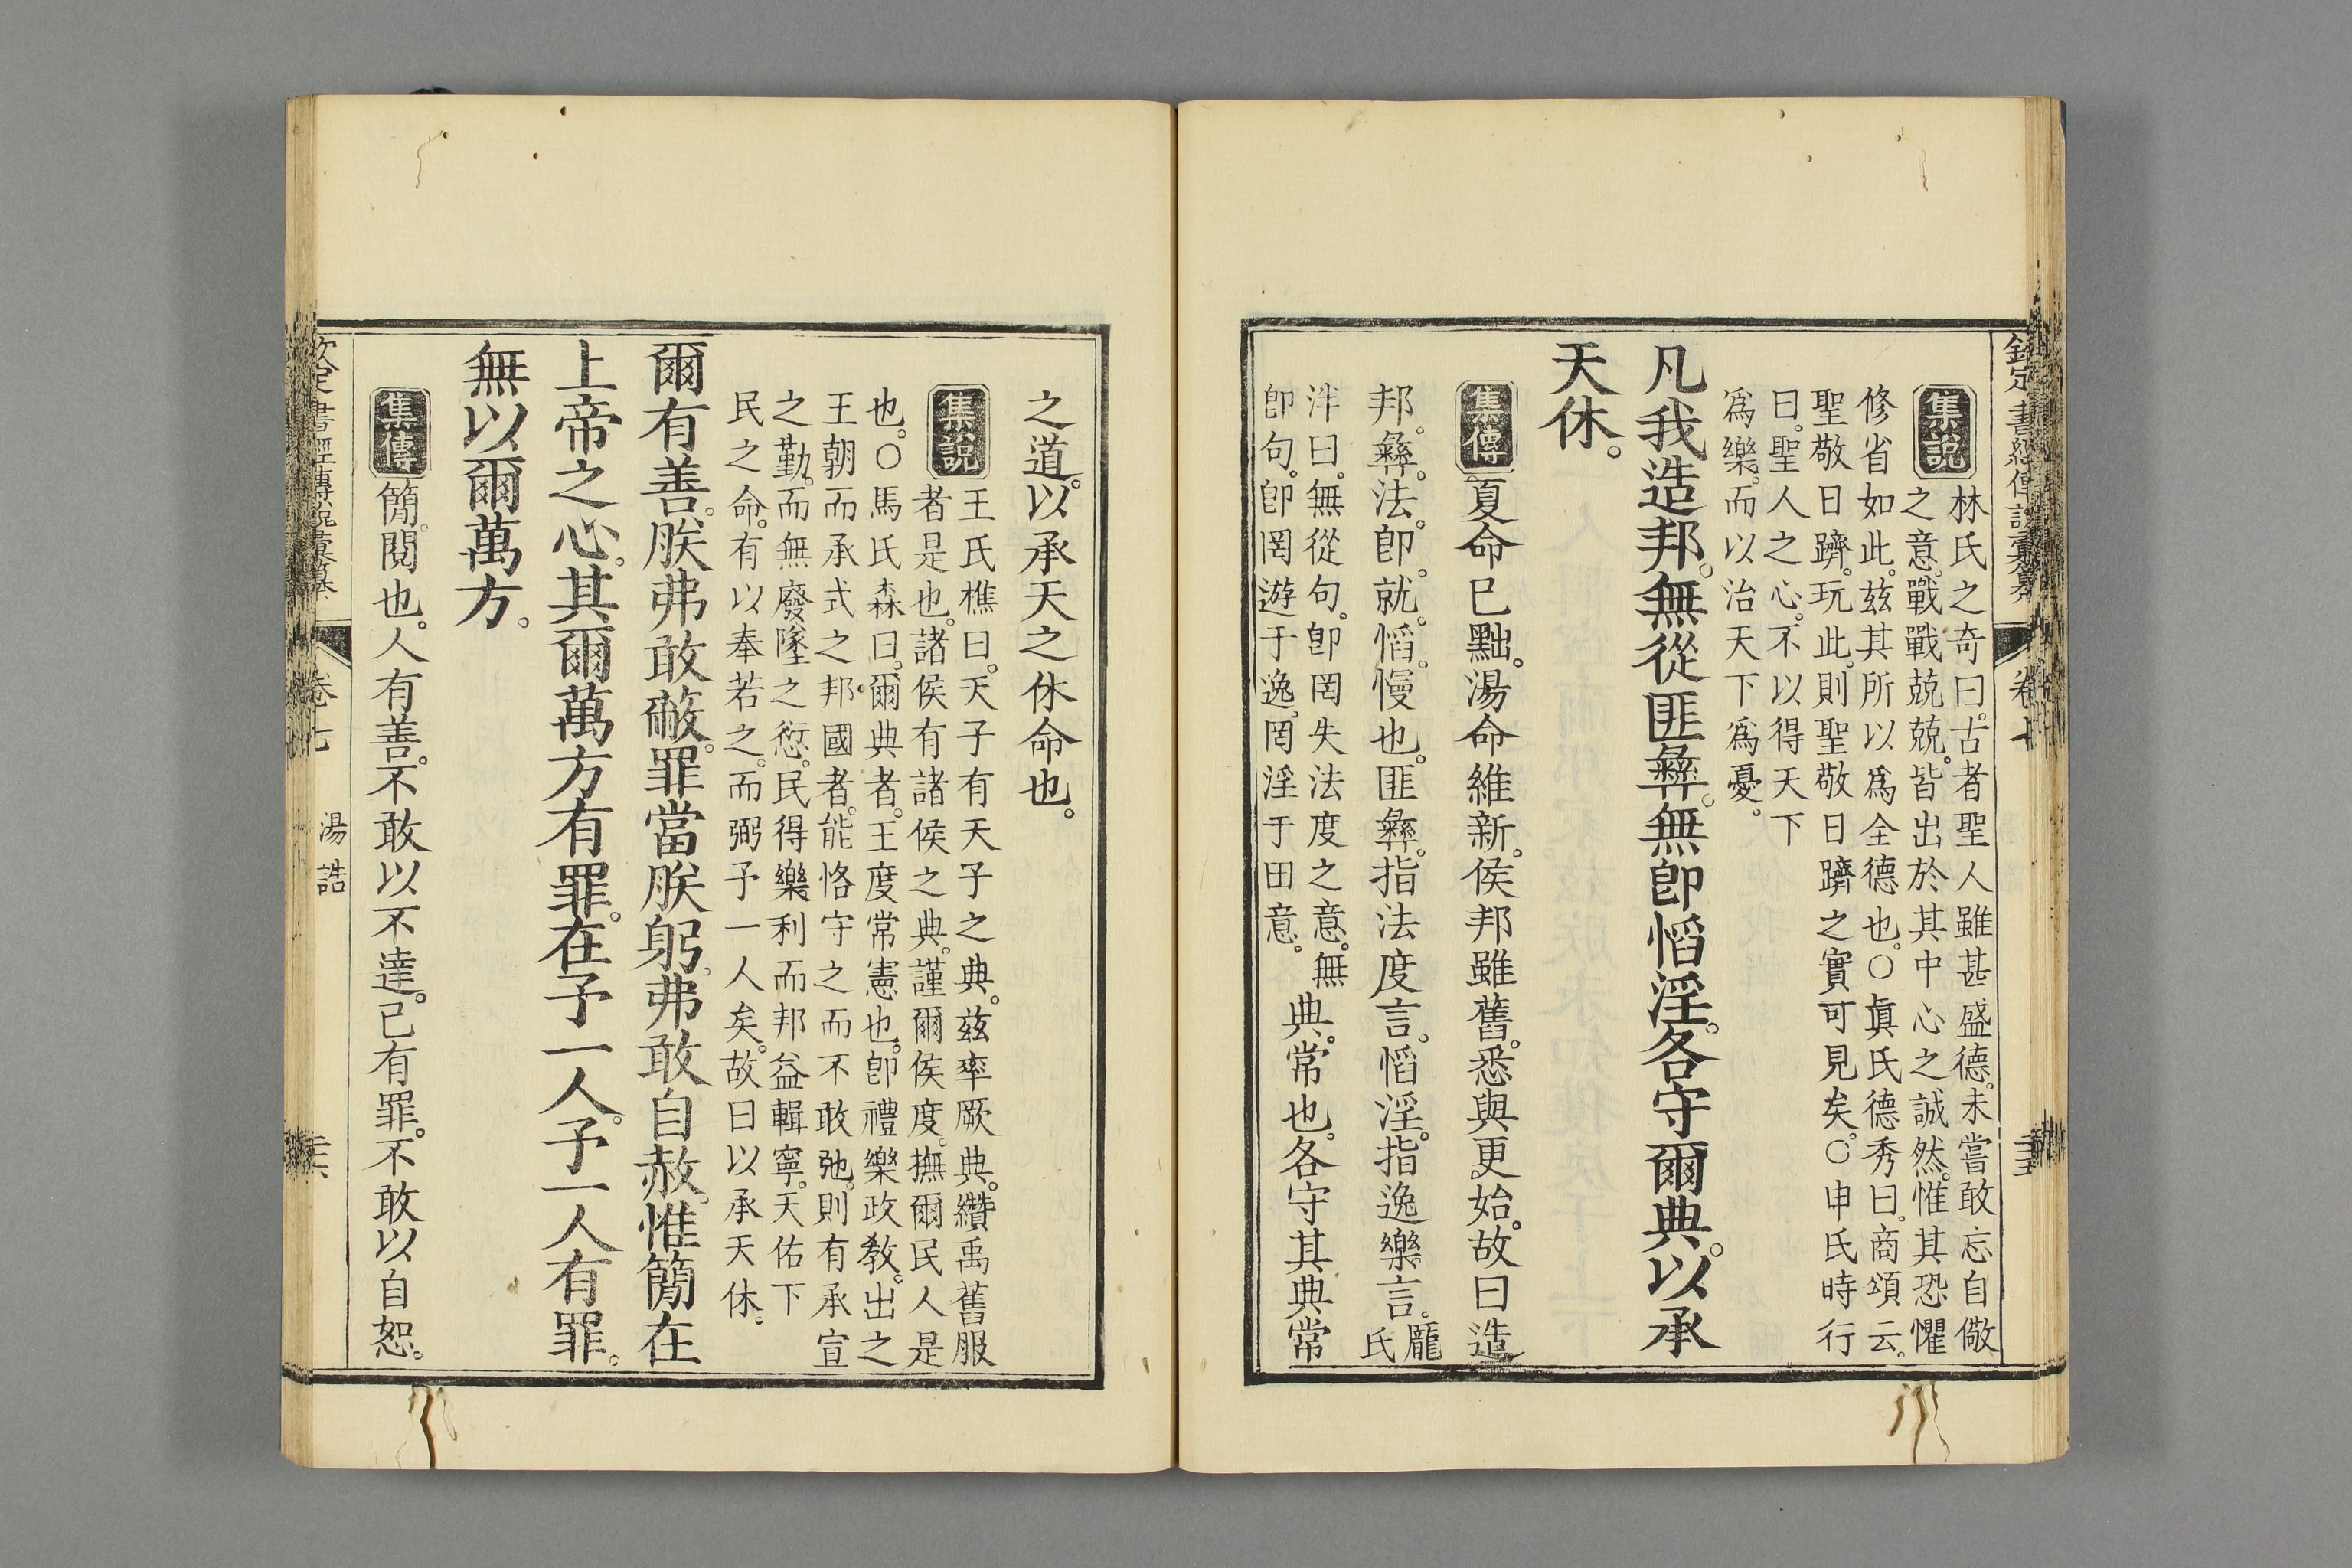 欽定書經傳說彙纂 卷七
集說 林氏之奇曰。古者聖人雖甚盛德。未嘗敢忘自儆
之意。戰戰兢兢。皆出於其中心之誠然。惟其恐懼
修省如此。茲其所以爲全德也。○眞氏德秀曰。商頌云。
聖敬日躋。玩此。則聖敬日躋之實可見矣。○申氏時行
曰。聖人之心。不以得天下
爲樂。而以治天下爲憂。
凡我造邦。無從匪彝。無卽慆淫。各守爾典。以承
天休。
集傳 夏命已黜。湯命維新。侯邦雖舊。悉與更始。故曰造
邦。彝。法。卽。就。慆。慢也。匪彝。指法度言。慆淫。指逸樂言。龎
氏
泮曰。無從句。卽罔失法度之意。無
卽句。卽罔游于逸。罔淫于田意。
典。常也。各守其典常
之道。以承天之休命也。
集說 王氏樵曰。天子有天子之典。茲率厥典。纘禹舊服
者是也。諸侯有諸侯之典。謹爾侯度。撫爾民人是
也。○馬氏森曰。爾典者。王度常憲也。卽禮樂政敎。出之
王朝而承式之邦國者。能恪守之而不敢弛。則有承宣
之勤。而無廢墜之愆。民得樂利而邦益輯寧。天佑下
民之命。有以奉若之。而弼予一人矣。故曰以承天休。
爾有善。朕弗敢蔽。罪當朕躬。弗敢自赦。惟簡在
上帝之心。其爾萬方有罪。在予一人。予一人有罪。
無以爾萬方。
集傳 簡。閱也。人有善。不敢以不達。已有罪。不敢以自恕。
欽定書經傳說彙纂 卷七 湯誥